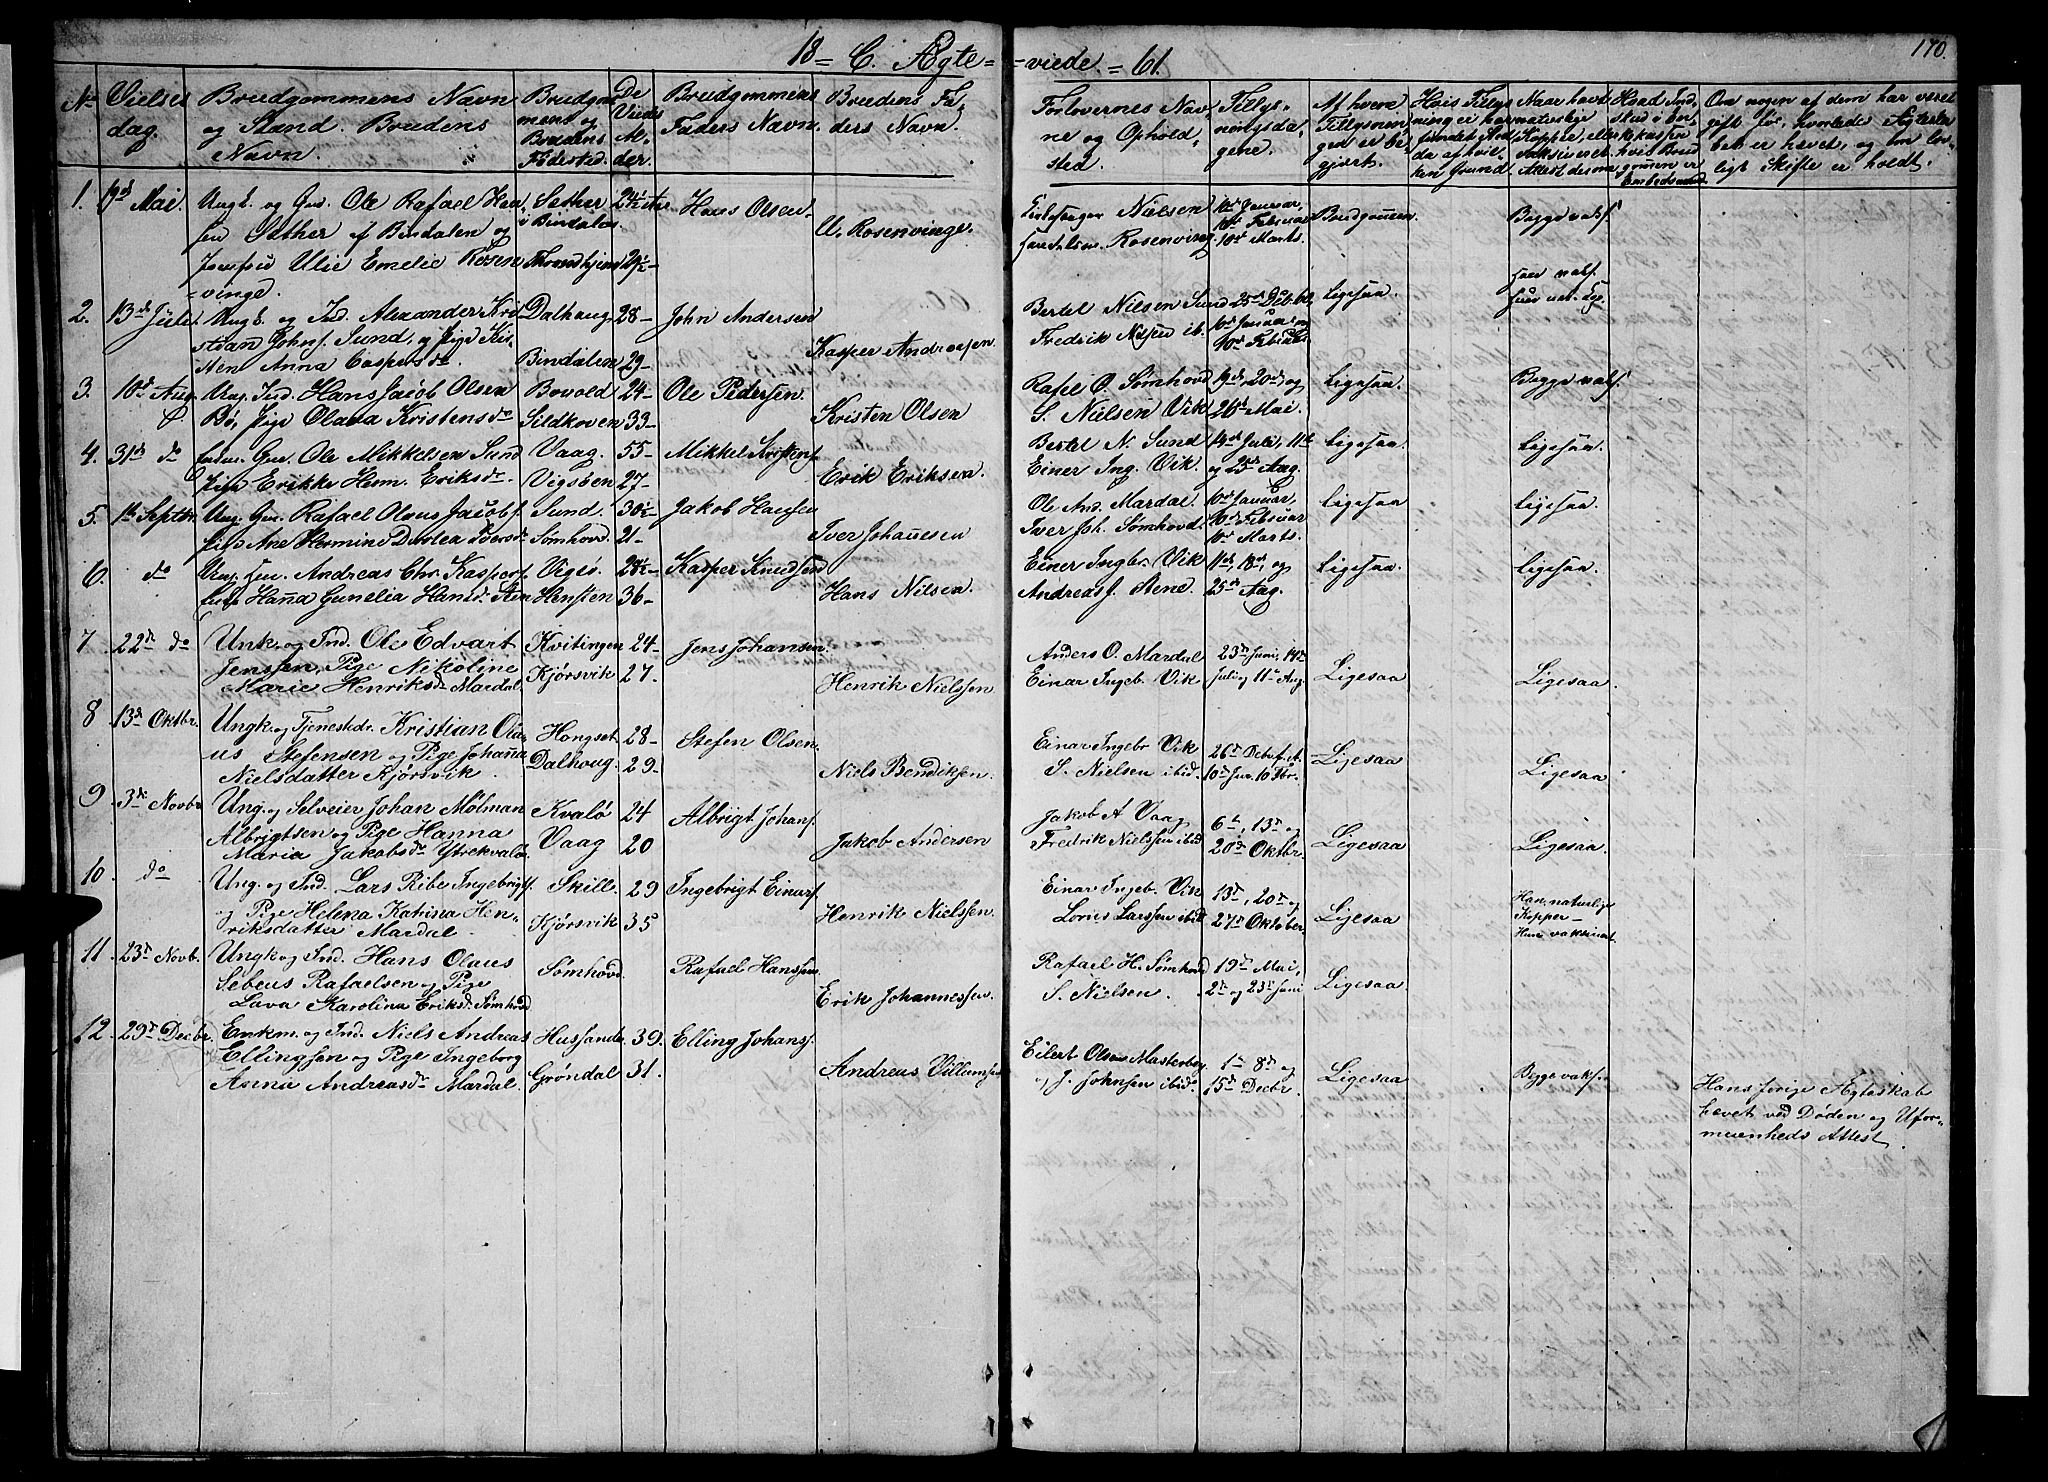 18 = C. Ægte = = viede. = 61.
170.
No Vielses dag. Brudgommens Navn og Stand. Brudens Navn. Brudgommens og Brudens Fødested. De Viedes Alder. Brudgommens Faders Navn. Brudens Faders Navn.
Forlovernes Navne og Opholdssted. Tillysningsdagene. Af hvem Tillysningen er begjært.
Om nogen af dem har været gift før, hvorledes Ægteskabet er hævet, og om lovligt Skifte er holdt.
1. 9de Mai. Ungk. og Gm. Ole Rafael Hansen Sæther af Bindalen og
Jomfru Ulie Emelie Rosenvinge.
Sæther i Bindalen 24½ Aar Hans Olsen.
Throndhjem 29½ – U. Rosenvinge.
Nielsen Rosenving 10de Januar, 10de Februar 10de Marts. Brudgommen. Begge vaks.
2. 13de Juli. Ungk. og Ind. Alexander Kristian Johns. Sund, og Pige Kisten Anna Caspersdr.
Dalhaug 28 – John Andersen
Bindalen 29 – Kasper Andreasen.
Bertel Nielsen Sund Fredrik Nielsen ib. 10de Januar og 10de Februar Ligesaa.
3. 10de Aug. Ung. Ind. Hans Jacob Olsen
Bø, Pige Olava Kristensdr
Bovold 24 – Ole Pedersen.
Sildkoven 33 – Kristen Olsen
Rafel O. Sømhovd S. Nielsen Vik 19de, 20de og 26de Mai. Ligesaa. Begge vaks.
4. 31te do Gm. Ole Mikkelsen Sund
Pige Erikke Herm. Eriksdr.
Vaag. 55 – Mikkel
Vigsöen 27 – Erik Eriksen.
Bertel N. Sund Einer Ing. Vik. 14de Juli, 11te og 25de Aug. Ligesaa. Ligesaa.
5. 1te Septbr. Ung. Gm. Rafael Olaus Jacobs.
Pige Ane Hermine Dorlea Iversdr
Sund. 30½ – Jakob Hansen
Sømhovd. 21 – Iver Johannesen
Ole And. Mardal. Iver Joh. Sømhovd. 10de Januar, 10de Februar 10de Marts. Ligesaa Ligesaa.
6. do Ung. Andreas Chr. Kaspers.
Hanna Gunelia Hansdr. Sten
Vigsö. 28½ – Kasper Knudsen
Hensten 36 – Hans Nilsen.
Einer Ingbr. Vik Andreas J. Stene. 11te, 18de, og 25de Aug. Ligesaa. Ligesaa.
7 22de do Unk. og Ind. Ole Edvart
Jenssen, Pige Nikoline
Marie Henriksdr Mardal.
Kvitingen 24 – Jens Johansen.
Kjørsvik 27. Henrik Nielssen
Anders O. Mardal Einar Ingeb. Vik 23de Juni, 14de Juli og 11te Aug. Ligesaa Ligesaa.
8 13de Oktbr. Ungk. og Tjenestedr. Kristian Olaus Stefensen og Pige Johanna
Nielsdatter Kjørsvik.
Hongset. 28 – Stefen Olsen.
Dalhoug. 29. Niels Bendiksen.
Einar Ingebr Vik S. Nielsen ibid. 26de 10de Jan. 10 Fbr. Ligesaa Ligesaa.
9 3de Novbr Ung. og Selveier Johan Mølman
Albrigtsen og Pige Hanna
Maria Jakobsdr Ytrekvalö.
Kvalö 24 Albrigt Johans.
Vaag 20 Jakob Andersen
Jakob A Vaag Fredrik Nielssen ibid 6te, 13de og 20de Oktbr. Ligesaa Ligesaa.
10. do Ung. og Ind. Lars Ribe Ingebrigts.
og Pige Helena Katrina Henriksdatter Mardal.
Skille. 29 Ingebrigt Einars.
Kjørsvik 35 Henrik Nielssen.
Einar Ingeb. Vik Lorius Larssen ibid 13de, 20de og 27de Oktober. Ligesaa Han naturlige Kopper – Hun vaksineret.
11 23de Novb. Ungk. og Ind. Hans Olaus
Sebeus Rafaelsen og Pige
Lava Karolina Eriksdr. Sømhovd
Sømhovd. Rafael Hanssen
Erik Johannessen.
Rafael H. Sømhovd S. Nielsen. 19de Mai, 2de og 23de Juni Ligesaa
12. 29de Decbr. Enkm. og Ind. Niels Andreas
Ellingsen og Pige Ingeborg
Anna Andreasdr Mardal.
39. Elling Johans.
Grøndal 31. Andreas Villumsen
Eilert Olsen og J. Johnsen ibid. 1te 8de og 15de Decbr. Ligesaa Begge vaks.
Hans forige Ægteskab
hævet ved Døden og Uformuenheds Attest.